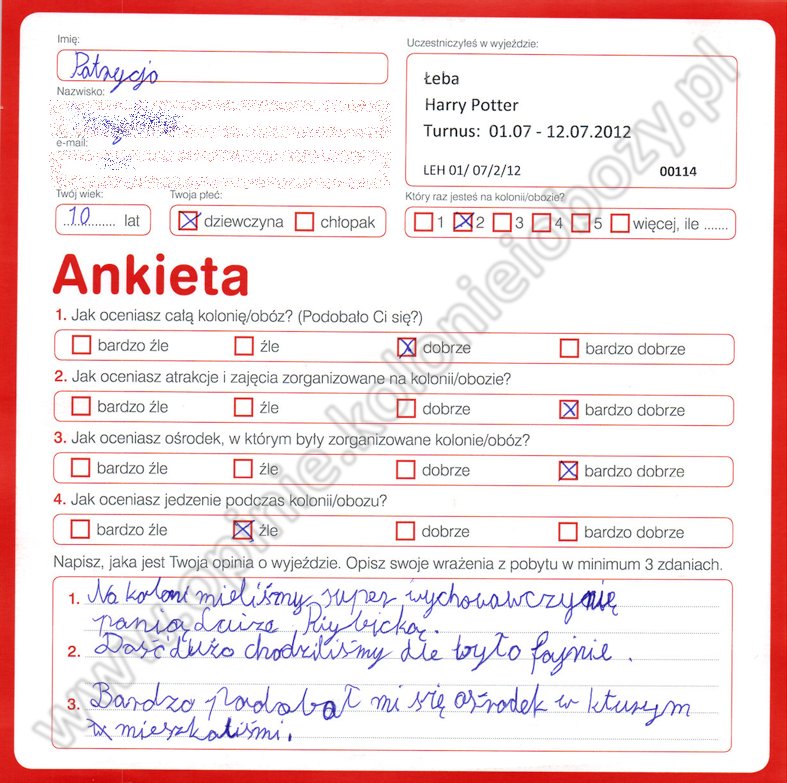 Imię:
Patrycja
Nazwisko:
e-mail:
Twój wiek:
10 lat
Twoja płeć:
dziewczyna chłopak
Uczestniczyłeś w wyjeździe:
Łeba
Harry Potter
Turnus: 01.07 - 12.07.2012
LEH 01/ 07/2/12 00114
Który raz jesteś na kolonii/obozie?
1 2 3 4 5 więcej, ile .......
Ankieta
1. Jak oceniasz całą kolonię/obóz? (Podobało Ci się?)
bardzo źle źle dobrze bardzo dobrze
2. Jak oceniasz atrakcje i zajęcia zorganizowane na kolonii/obozie?
bardzo źle źle dobrze bardzo dobrze
3. Jak oceniasz ośrodek, w którym były zorganizowane kolonie/obóz?
bardzo źle źle dobrze bardzo dobrze
4. Jak oceniasz jedzenie podczas kolonii/obozu?
bardzo źle źle dobrze bardzo dobrze
Napisz, jaka jest Twoja opinia o wyjeździe. Opisz swoje wrażenia z pobytu w minimum 3 zdaniach.
1. Na koloni mieliśmy super wychowawczynię
panią Luize
2. Dość dużo chodziliśmy ale było fajnie.
3. Bardzo podobał mi się ośrodek w kturym
mieszkaliśmi.
www.opinie.kolonieiobozy.pl